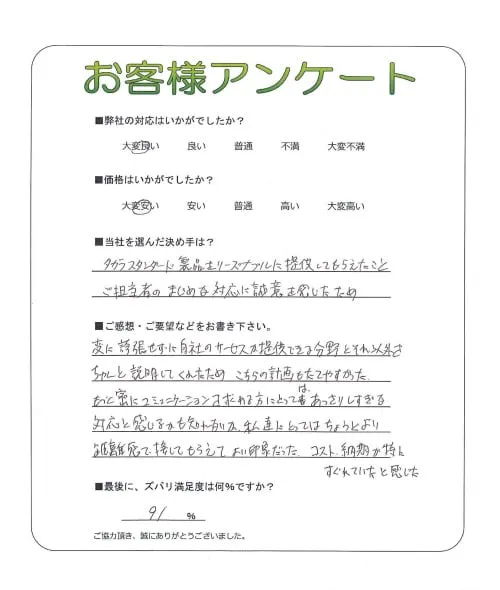 お客様アンケート
■弊社の対応はいかがでしたか？
大変良い 良い 普通 不満 大変不満
■価格はいかがでしたか？
大変安い 安い 普通 高い 大変高い
■当社を選んだ決め手は？
タカラスタンダード製品をリーズナブルに提供してもらえたこと
ご担当者のまじめな対応に誠意を感じたため
■ご感想・ご要望などをお書き下さい。
変に誇張せずに自社のサービスが提供できる分野とそれ以外を
ちゃんと説明してくれたため こちらの計画もたてやすかった。
もっと密にコミュニケーションを される方にとっては あっさりしすぎる
対応と感じるかも知れないが、私達にとってはちょうどよい
距離感で接してもらえて よい印象だった。コスト、納期が特に
すぐれていたと感じた
■最後に、ズバリ満足度は何％ですか？
91 ％
ご協力頂き、誠にありがとうございました。